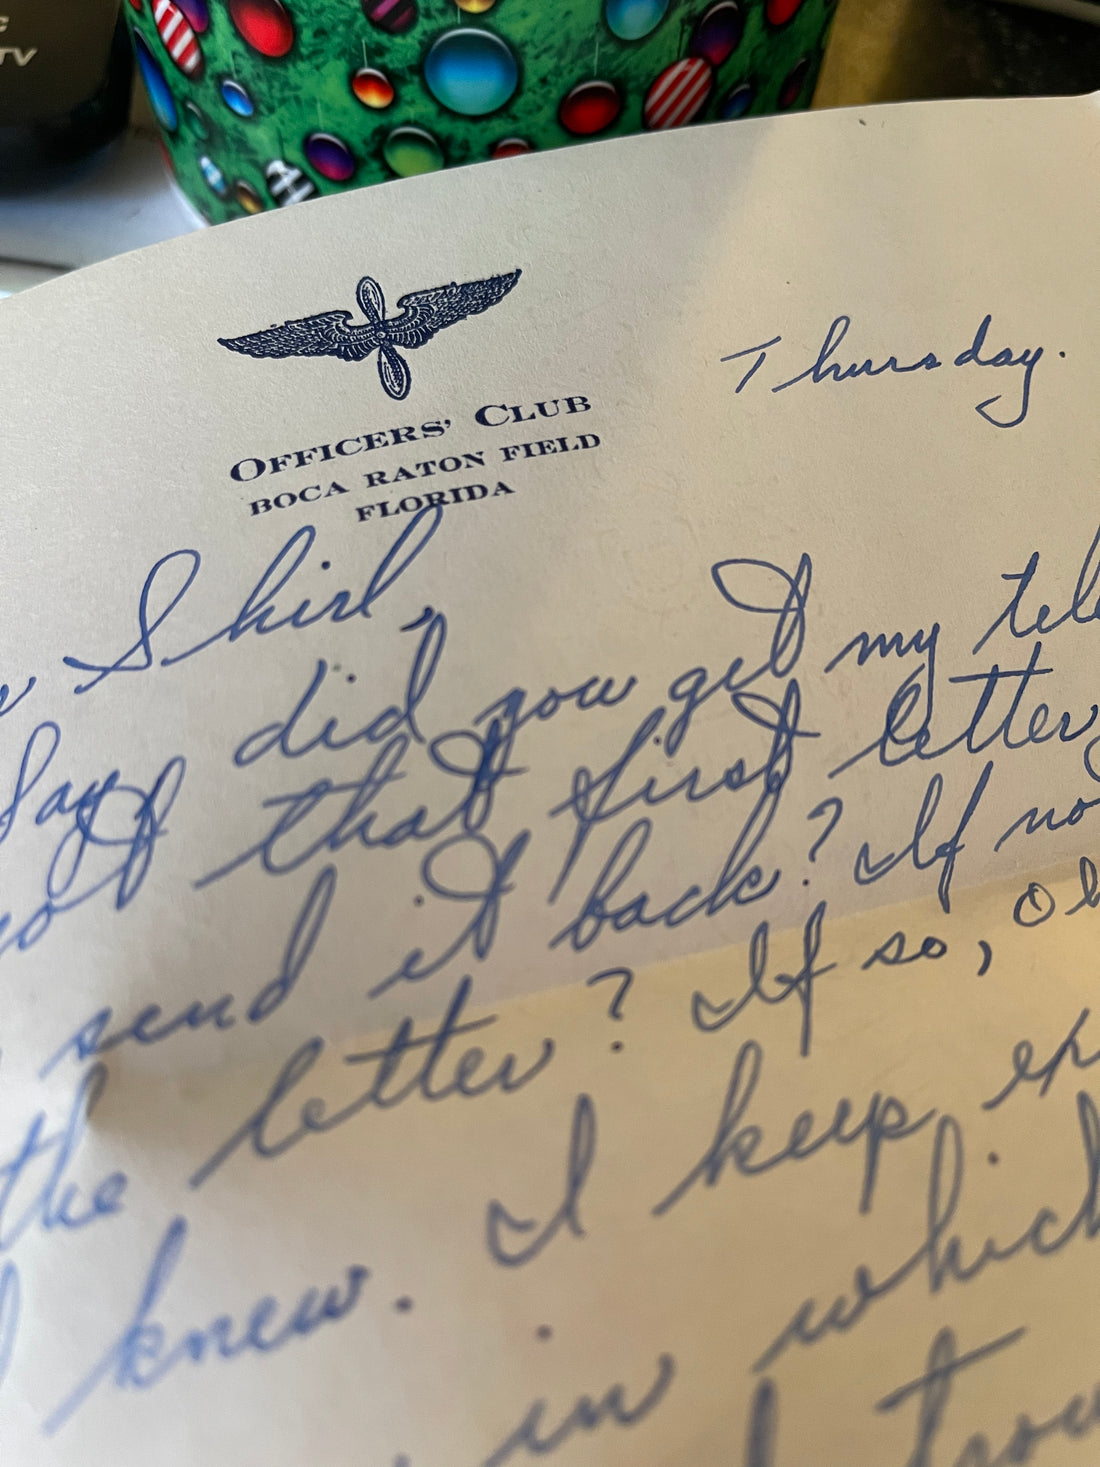 C
TV
OFFICERS' CLUB
BOCA RATON FIELD
FLORIDA
Thursday.
Shirl,
Say did you get my tel
got that first letter,
send it back? If no
the letter? If so, oh
knew. I keep ex
in which